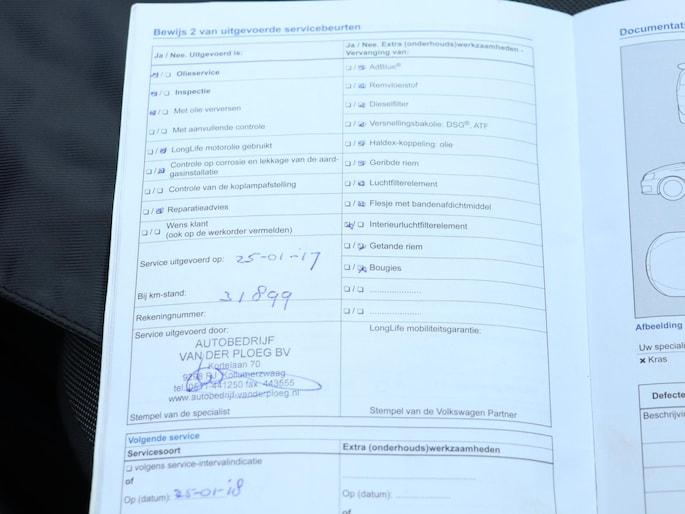 Bewijs 2 van uitgevoerde servicebeurten
Ja / Nee. Uitgevoerd is:
Olieservice
Inspectie
Met olie verversen
Met aanvullende controle
LongLife motorolie gebruikt
Controle op corrosie en lekkage van de aard-
gasinstallatie
Controle van de koplampafstelling
Reparatieadvies
Wens klant
(ook op de werkorder vermelden)
Service uitgevoerd op: 25-01-'17
Bij km-stand: 31899
Rekeningnummer:
Service uitgevoerd door:
AUTOBEDRIJF
VAN DER PLOEG BV
Kortelaan 70
Kollumerzwaag
441250 fax. 443555
www.autobedrijf-vanderploeg.nl
Stempel van de specialist
Ja / Nee. Extra (onderhouds)werkzaamheden -
Vervanging van:
AdBlue®
Remvloeistof
Dieselfilter
Versnellingsbakolie: DSG®, ATF
Haldex-koppeling: olie
Geribde riem
Luchtfilterelement
Flesje met bandenafdichtmiddel
Interieurluchtfilterelement
Getande riem
Bougies
LongLife mobiliteitsgarantie:
Stempel van de Volkswagen Partner
Volgende service
Servicesoort
volgens service-intervalindicatie
of
Op (datum): 25-01-18
Extra (onderhouds)werkzaamheden
Op (datum):
of
Documentat
Afbeelding
Uw speciali
× Kras
Defecte
Beschrijvin